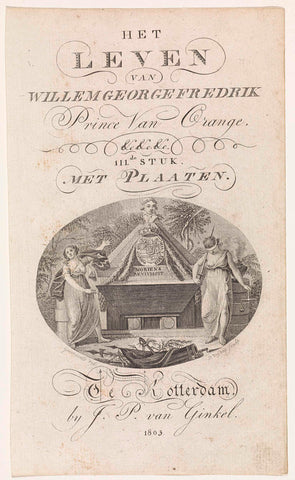 HET
LEVEN
VAN
WILLEM GEORGE FREDRIK
Prince Van Orange.
&c. &c. &c.
III.de STUK.
MET PLAATEN.
MORIENS
Te Rotterdam,
by J. P. van Ginkel.
1803